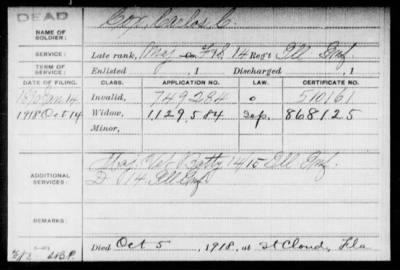 DEAD
NAME OF SOLDIER: Cox, Carlos C.
SERVICE: Late rank, Maj F&S, 14 Reg't Ill Inf.
TERM OF SERVICE: Enlisted , 1 Discharged , 1
DATE OF FILING. CLASS. APPLICATION NO. LAW. CERTIFICATE NO.
Jan 14 Invalid, 749284 510161
1918 Oct 14 Widow, 1129.584 868125
Minor,
ADDITIONAL SERVICES: Maj. Vet. Batty 14/15 Ill Inf.
D 14 Ill Inf.
REMARKS:
Died Oct 5, 1918, at St Cloud, Fla